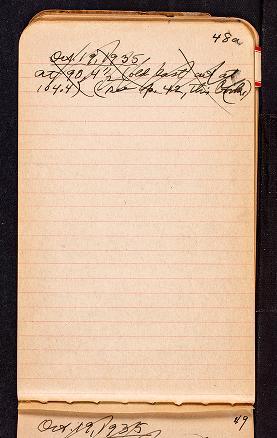 48a
Oct. 19, 1935
at 90.4½ (old last at
104.4) (see p. 42, this book)
49
Oct. 19, 1935